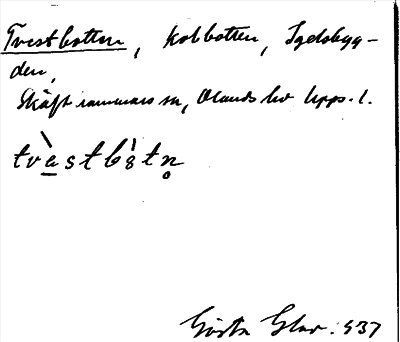 Tvestbotten, Kolbotten, Igelsbyg-
den,
Skäft rammars sn, Ölands hd Upps. l.
tvàstbòtn̥
Gösta Glav. 537